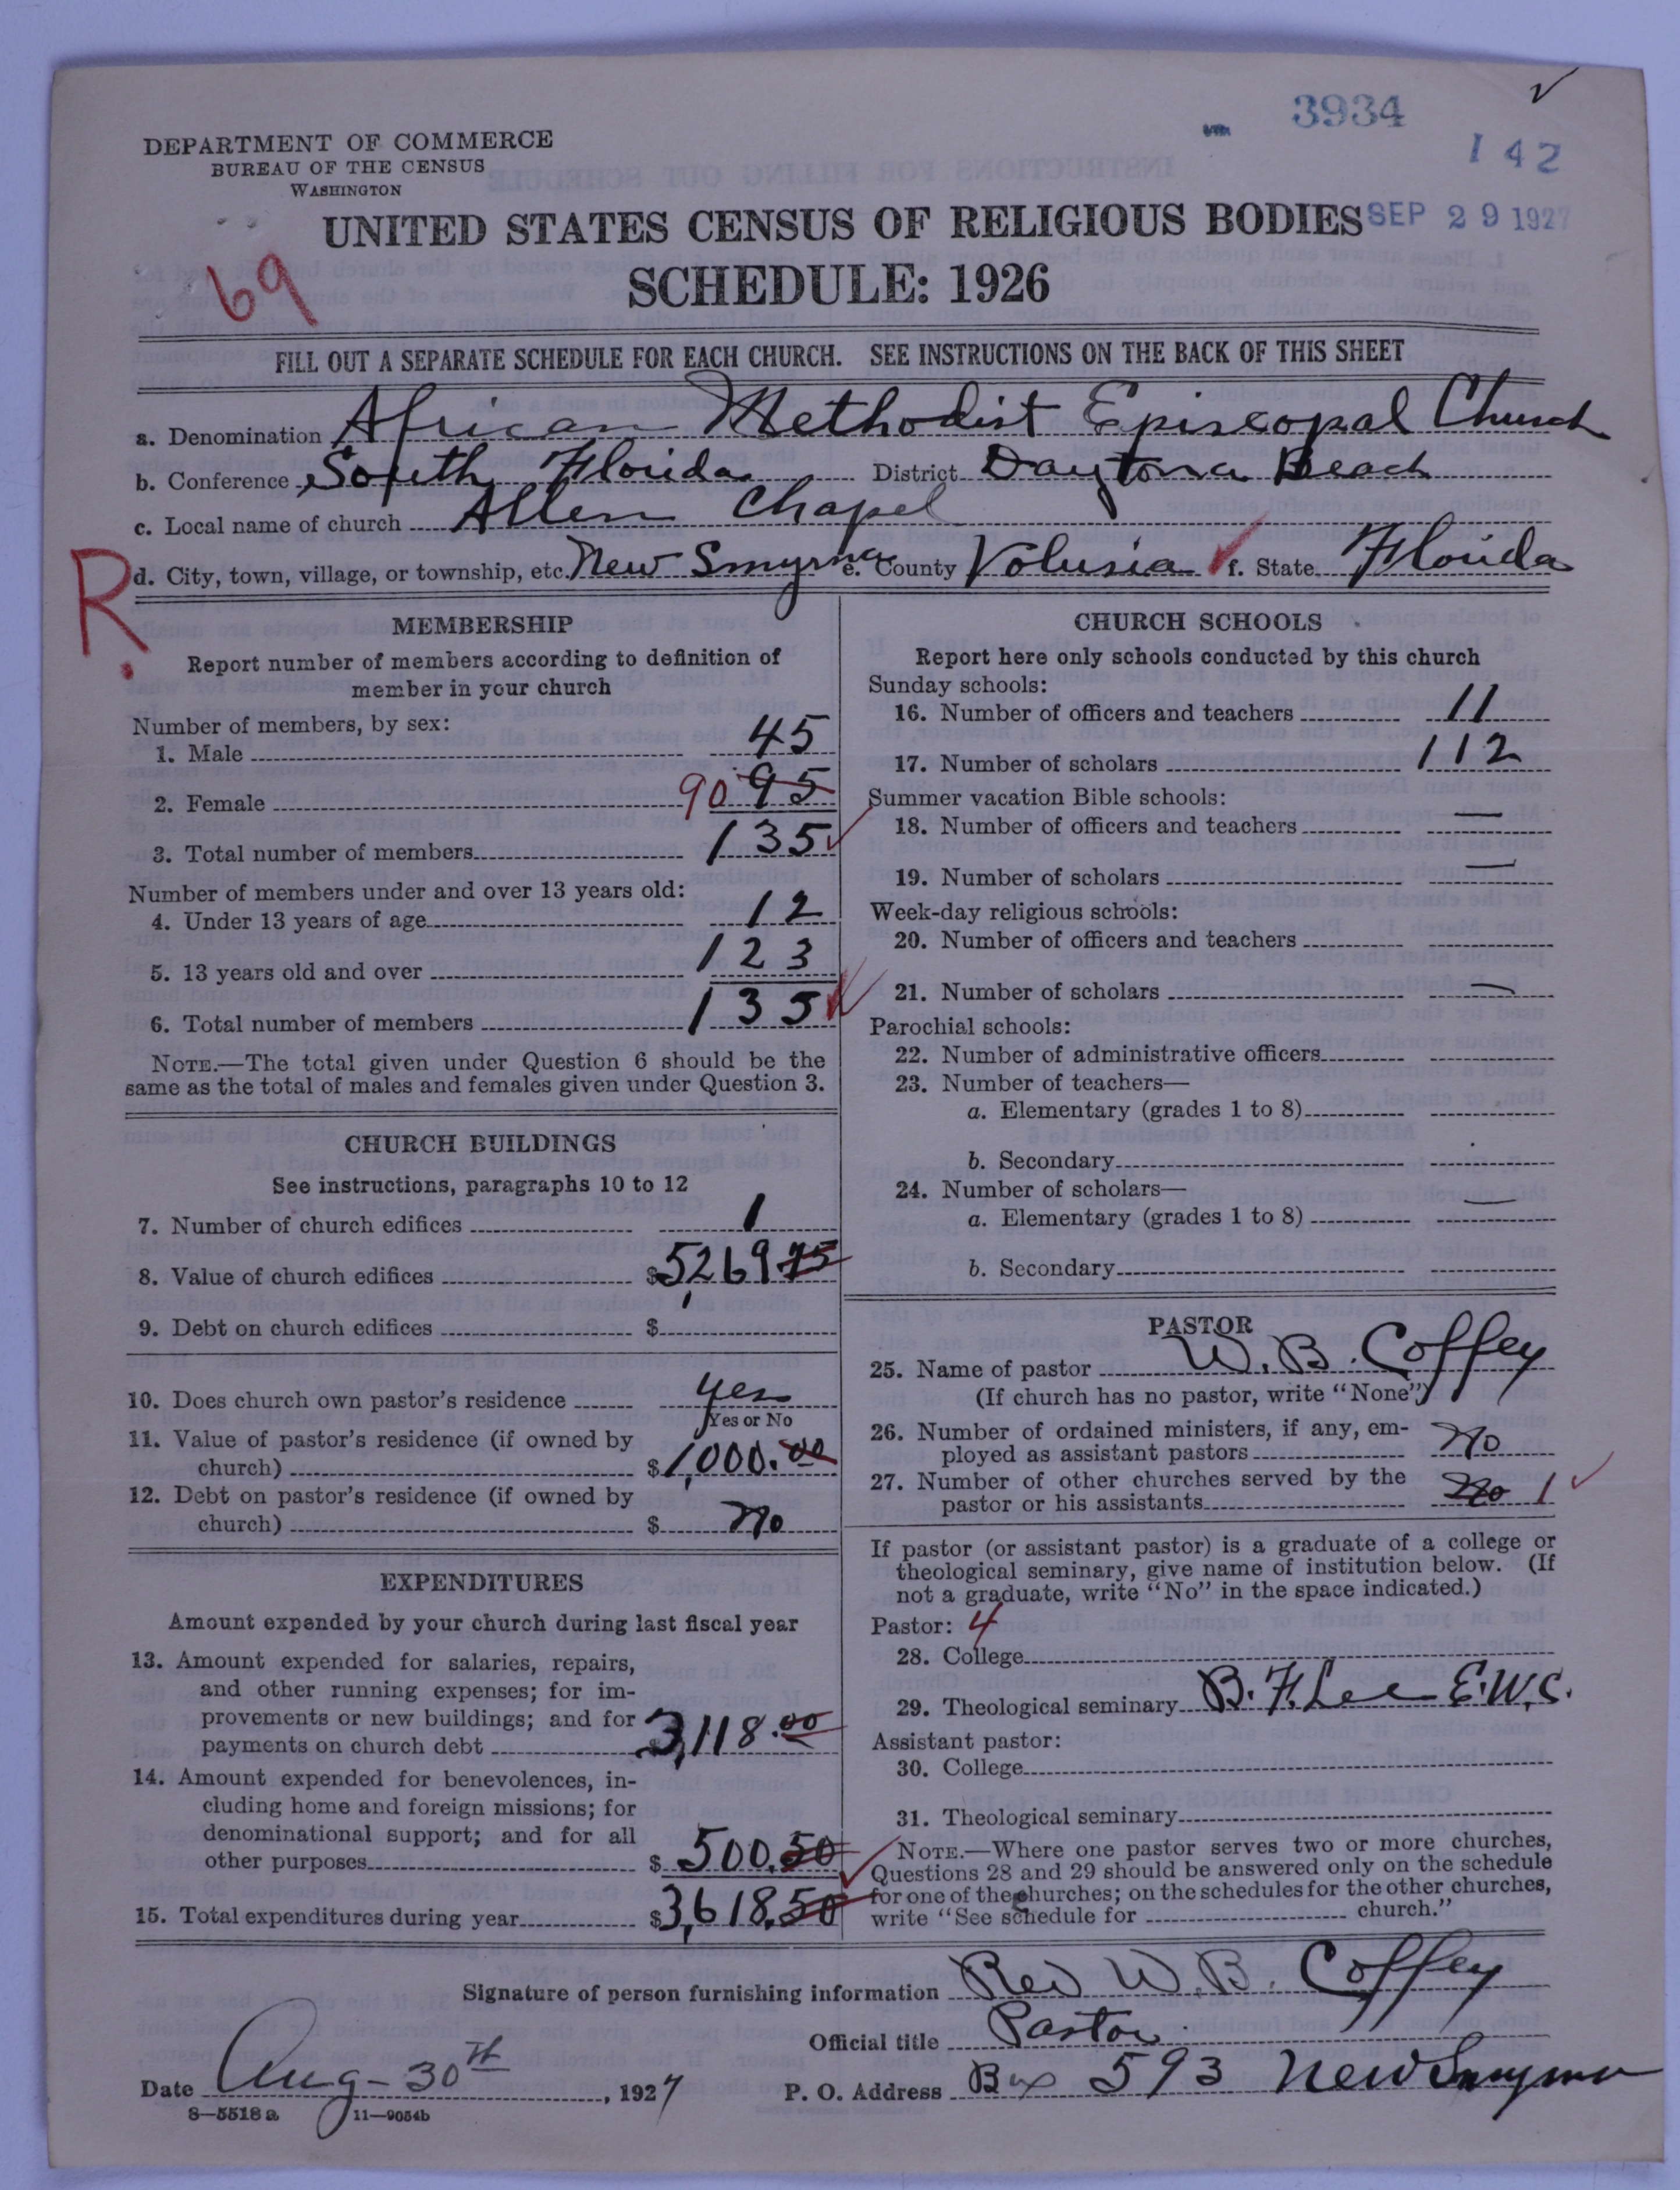 3934
142
DEPARTMENT OF COMMERCE
BUREAU OF THE CENSUS
WASHINGTON
UNITED STATES CENSUS OF RELIGIOUS BODIES
SEP 29 1927
SCHEDULE: 1926
69
FILL OUT A SEPARATE SCHEDULE FOR EACH CHURCH. SEE INSTRUCTIONS ON THE BACK OF THIS SHEET
a. Denomination African Methodist Episcopal Church
b. Conference South Florida District Daytona Beach
c. Local name of church Allen Chapel
R. d. City, town, village, or township, etc. New Smyrna e. County Volusia f. State Florida
MEMBERSHIP
Report number of members according to definition of
member in your church
Number of members, by sex:
1. Male 45
2. Female 90 95
3. Total number of members 135
Number of members under and over 13 years old:
4. Under 13 years of age 12
5. 13 years old and over 123
6. Total number of members 135
NOTE.—The total given under Question 6 should be the
same as the total of males and females given under Question 3.
CHURCH BUILDINGS
See instructions, paragraphs 10 to 12
7. Number of church edifices 1
8. Value of church edifices $5,269 75
9. Debt on church edifices $
10. Does church own pastor's residence yes
Yes or No
11. Value of pastor's residence (if owned by
church) $1,000.00
12. Debt on pastor's residence (if owned by
church) $ no
EXPENDITURES
Amount expended by your church during last fiscal year
13. Amount expended for salaries, repairs,
and other running expenses; for im-
provements or new buildings; and for
payments on church debt $3,118.00
14. Amount expended for benevolences, in-
cluding home and foreign missions; for
denominational support; and for all
other purposes $ 500.50
15. Total expenditures during year $3,618.50
CHURCH SCHOOLS
Report here only schools conducted by this church
Sunday schools:
16. Number of officers and teachers 11
17. Number of scholars 112
Summer vacation Bible schools:
18. Number of officers and teachers —
19. Number of scholars —
Week-day religious schools:
20. Number of officers and teachers
21. Number of scholars —
Parochial schools:
22. Number of administrative officers
23. Number of teachers—
a. Elementary (grades 1 to 8)
b. Secondary
24. Number of scholars—
a. Elementary (grades 1 to 8) —
b. Secondary
PASTOR
25. Name of pastor W. B. Coffey
(If church has no pastor, write "None")
26. Number of ordained ministers, if any, em-
ployed as assistant pastors no
27. Number of other churches served by the
pastor or his assistants no 1
If pastor (or assistant pastor) is a graduate of a college or
theological seminary, give name of institution below. (If
not a graduate, write "No" in the space indicated.)
Pastor: 4
28. College
29. Theological seminary B. F. Lee E.W.C.
Assistant pastor:
30. College
31. Theological seminary
NOTE.—Where one pastor serves two or more churches,
Questions 28 and 29 should be answered only on the schedule
for one of the churches; on the schedules for the other churches,
write "See schedule for church."
Signature of person furnishing information Rev W. B. Coffey
Official title Pastor
Date Aug-30th, 1927 P. O. Address Box 593 New Smyrna
8—5518 a 11—9054b